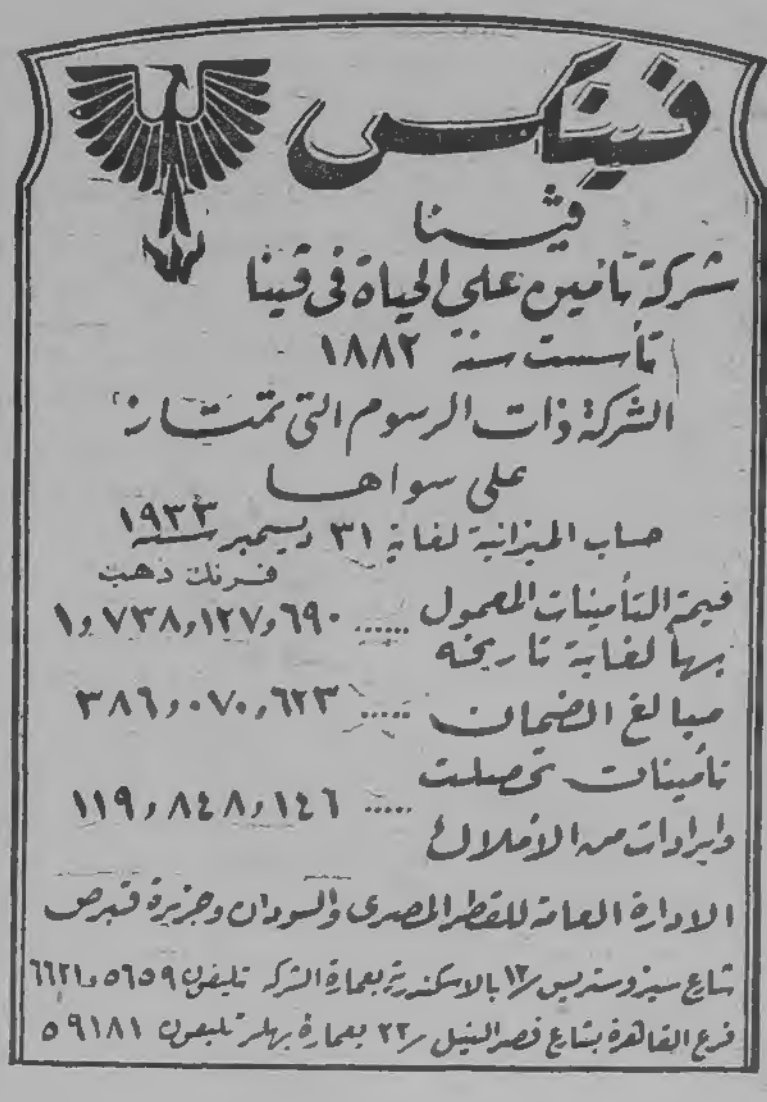 فينكس
ڤينا
شركة تأمين على الحياة فى ڤينا
تأسست سنة ١٨٨٢
الشركة ذات الرسوم التى تمتاز
على سواها
حساب الميزانية لغاية ٣١ ديسمبر سنة ١٩٣٣
فرنك ذهب
قيمة التأمينات المعمول ...... ١,٧٣٨,١٢٧,٦٩٠
بها لغاية تاريخه
مبالغ الضمان ..... ٣٨٦,٠٧٠,٦٢٣
تأمينات تحصلت
..... ١١٩,٨٤٨,١٤٦
وايرادات من الأملاك
الادارة العامة للقطر المصرى والسودان وجزيرة قبرص
شارع سيزوستريس ١٢ بالاسكندرية بعمارة الشركة تليفون ٥٦٥٩ و ٦٦٢١
فرع القاهرة بشارع قصر النيل ٢٢ بعمارة بهلر تليفون ٥٩١٨١